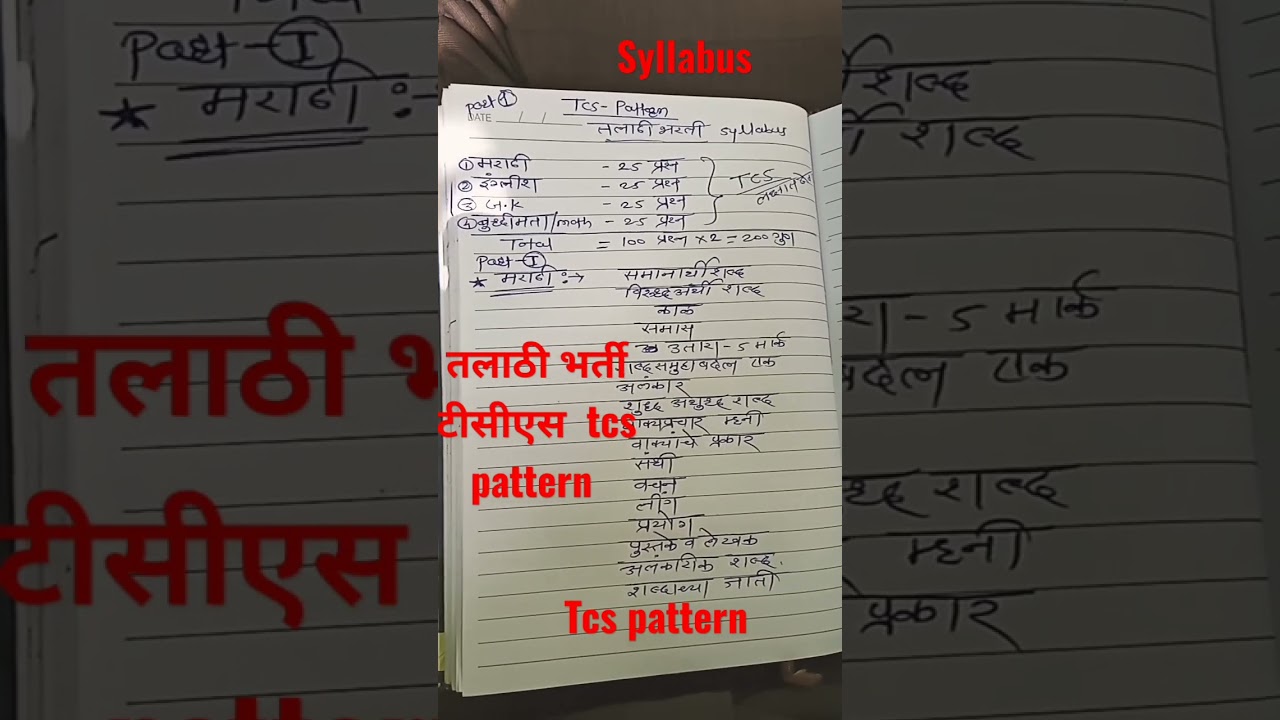 Syllabus
Part ①
TCS - Pattern
DATE / /
तलाठी भरती syllabus
① मराठी - 25 प्रश्न
② इंग्लीश - 25 प्रश्न
③ G.K - 25 प्रश्न
④ बुध्दीमता/math - 25 प्रश्न
TCS
Total = 100 प्रश्न × 2 = 200 गुण
Part - Ⓘ
★ मराठी :→ समानार्थी शब्द
विरुध्दअर्थी शब्द
काळ
समास
उतारा - 5 मार्क
शब्दसमुहाबद्दल एक
अलंकार
शुध्द अशुध्द शब्द
वाक्यप्रचार म्हनी
वाक्याचे प्रकार
संधी
वचन
लींग
प्रयोग
पुस्तके व लेखक
अलंकारीक शब्द.
शब्दाच्या जाती
तलाठी भर्ती
टीसीएस tcs
pattern
Tcs pattern
Part - Ⓘ
★ मराठी :-
तलाठी
टीसीएस
शब्द
शब्द
- 5 मार्क
एक
शब्द
म्हनी
प्रकार